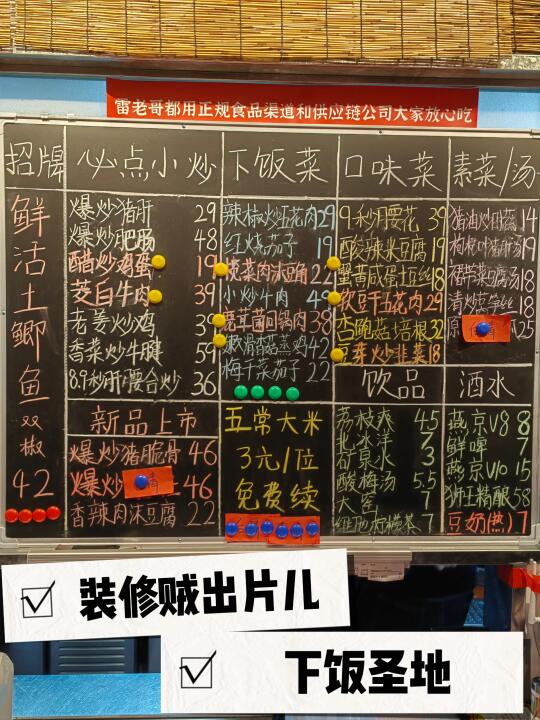 雷老哥都用正规食品渠道和供应链公司大家放心吃
招牌
鲜活土鲫鱼
双椒
42
必点小炒
爆炒猪肝 29
爆炒肥肠 48
醋炒鸡蛋 19
茭白牛肉 39
老姜炒鸡 39
香菜炒牛腱 59
8.9秒肝腰合炒 36
新品上市
爆炒猪脆骨 46
爆炒 46
香辣肉沫豆腐 22
下饭菜
辣椒炒五花肉 29
红烧茄子 19
肉沫豆角 22
小炒牛肉 49
菌回锅肉 38
嫩滑香菇蒸鸡 42
梅干菜茄子 22
五常大米
3元/位
免费续
口味菜
9秒炒腰花 39
酸辣米豆腐 19
蟹黄咸蛋土豆丝 18
软豆干五花肉 29
杏鲍菇培根 32
豆芽炒韭菜 18
饮品
荔枝爽 4.5
北冰洋 7
矿泉水 3
酸梅汤 5.5
大窑 7
维他柠檬茶 7
素菜/汤
14
19
18
18
25
酒水
燕京V8 8
鲜啤 7
燕京U10 15
狮王精酿 58
豆奶(热) 7
装修贼出片儿
下饭圣地